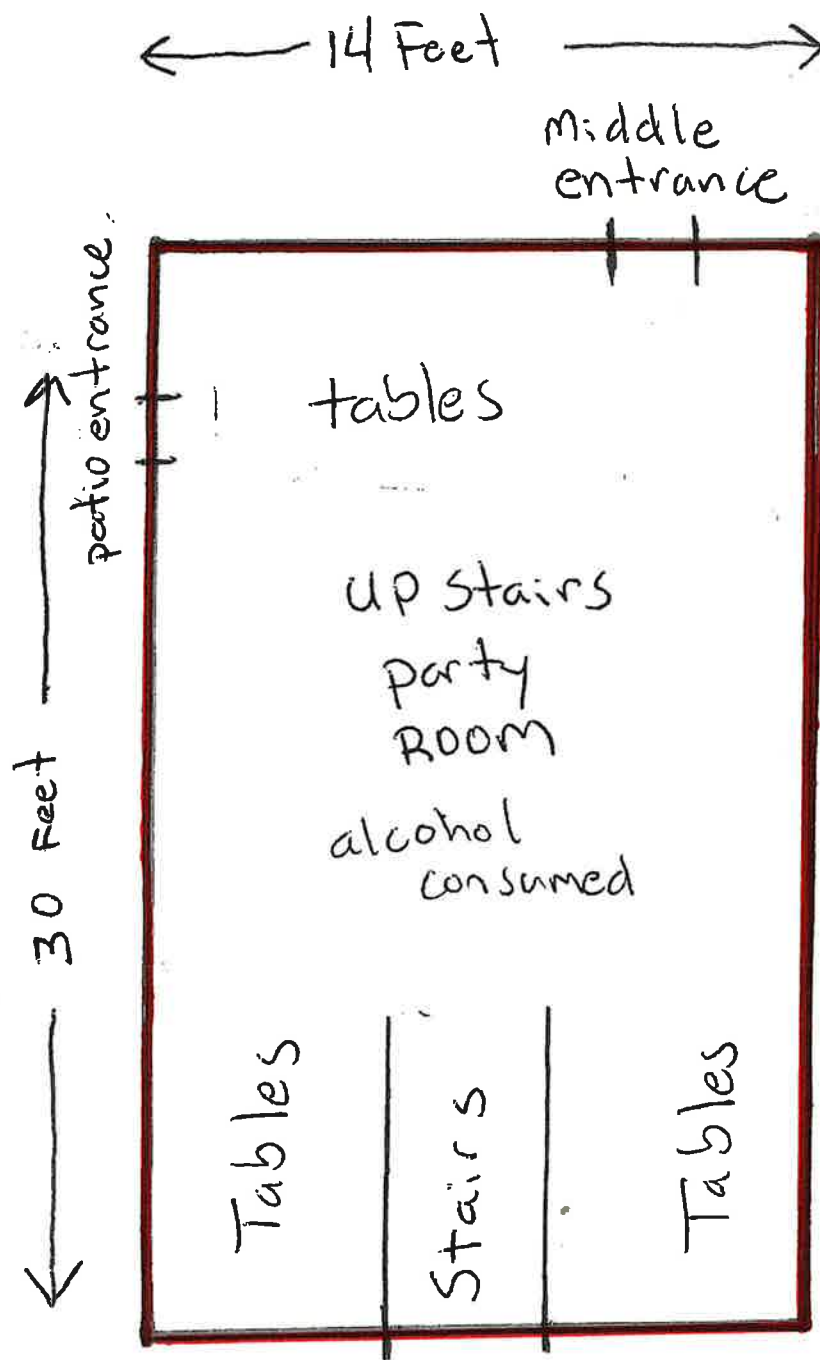 14 Feet
Middle
entrance
patio entrance.
tables
UP Stairs
party
ROOM
alcohol
consumed
30 Feet
Tables
Stairs
Tables